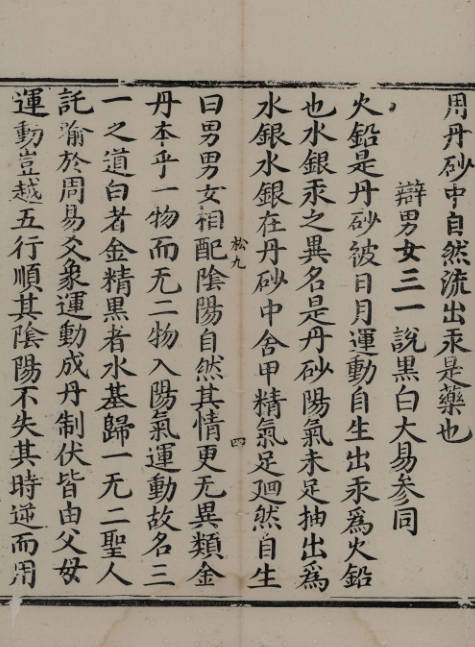 用丹砂中自然流出汞是藥也
辯男女三一說黑白大易參同
火鉛是丹砂彼日月運動自生出汞爲火鉛
也水銀汞之異名是丹砂陽氣未足抽出爲
水銀水銀在丹砂中含甲精氣足廻然自生
松九
四
曰男男女相配陰陽自然其情更无異類金
丹本乎一物而无二物入陽氣運動故名三
一之道白者金精黑者水基歸一无二聖人
託喻於周易爻象運動成丹制伏皆由父母
運動豈越五行順其陰陽不失其時逆而用